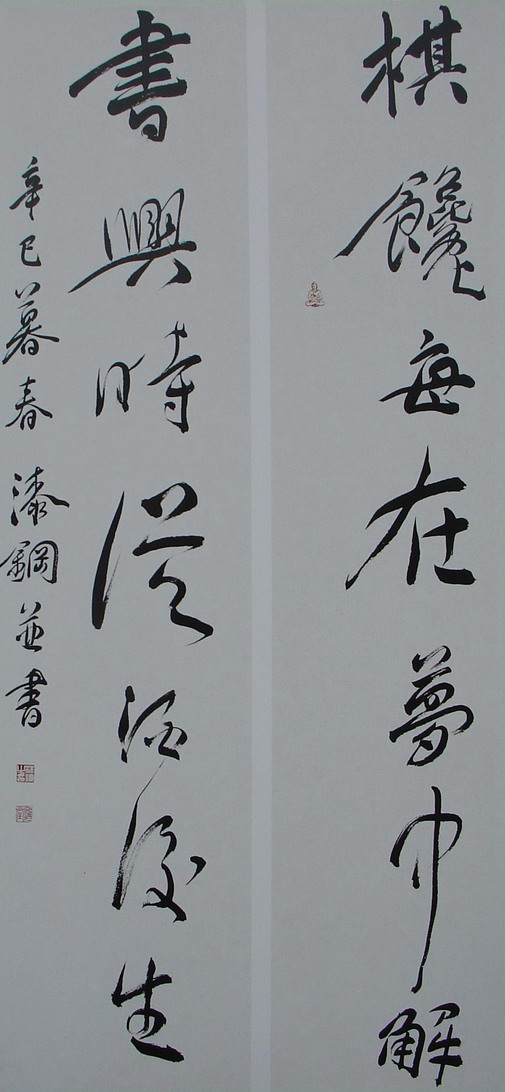 棋饞每在夢中解
書興時從酒後生
辛巳暮春漆鋼並書